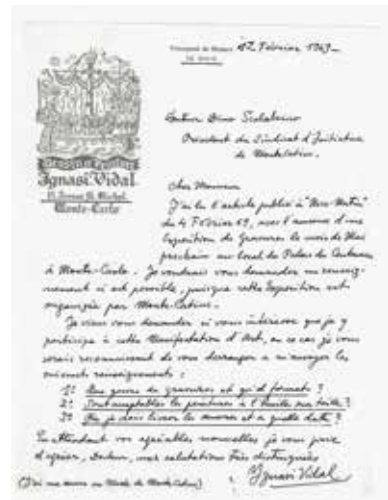 Principauté de Monaco 12 Février 1969_
Gravures et Peintures
Ignasi Vidal
Monte-Carlo
Docteur Dino Scalabrino
Président du Sindicat d'Initiative
de Montecatini.
Cher Monsieur
J'ai lu l'article publié à "Nice-Matin"
du 4 Février 69, avec l'annonce d'une
Exposition de Gravures le mois de Mai
prochain au local du Palais du
à Monte-Carlo. Je voudrais vous demander un renseig-
nement si est possible, puisque cette Exposition est
organizée par Monte-Catini.
Je viens vous demander si vous intéresse que je y
participe à cette Manifestation d'Art, en ce cas je vous
serais reconnaissant de vous deranger a m'envoyer les
suivants renseignements:
1º Que genre de gravures et qu'el formats?
2º Sont acceptables les peintures à l'huile sur toile?
3º Ou je dois livrer les œuvres et a quelle date?
En attendant vos agréables nouvelles je vous prie
d'agréer, Docteur, mes salutations très distinguées
Ignasi Vidal
(J'ai une œuvre au Musée de Monte-Catini)